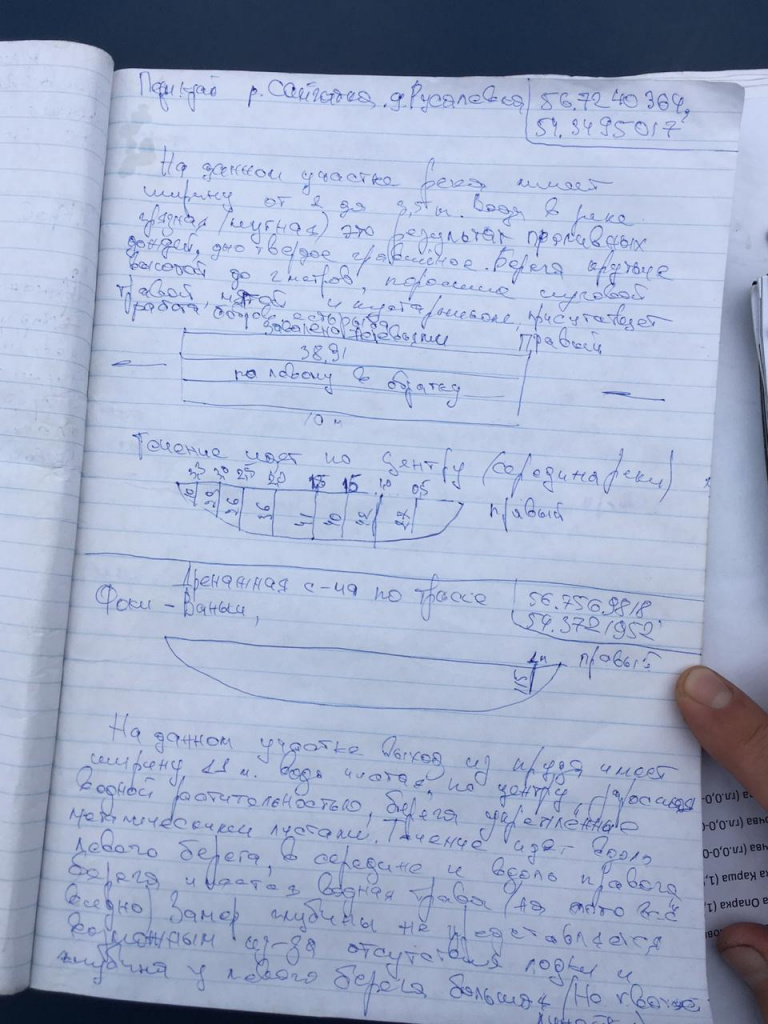 р. Сайгатка д. Русалевка 56.7240364,
54.3495017
На данном участке река имеет
ширину от 2 до 3,5 м. Вода в реке
грязная (мутная) это результат проливных
дождей, дно твердое гравийное. Берега крутые
высотой до 2 метров, поросшие луговой
травой, и кустарником, присутствует
работа бобров, есть
Правый
38,91
по левому в
10 м
Течение идет по центру (середина реки)
25 20 15 05
правый
Дренажная с-ма по трассе 56.7569818
Фоки - Ваньки, 54.3721952
1м правый
На данном участке выход из пруда имеет
ширину 11 м. вода чистая, по центру, заросшая
водной растительностью, берега укрепленные
металическими листами. Течение идет вдоль
левого берега, в середине и вдоль правого
берега имеется водная трава (на фото всё
видно) Замер глубины не представляется
возможным из-за отсутствия лодки и
глубина у левого берега большая (Не хватает